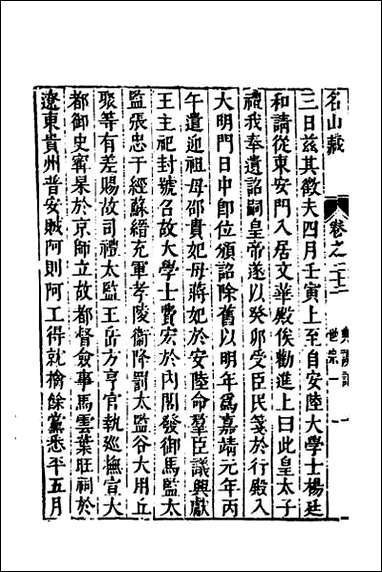 名山藏
卷之二十二
典謨記
世宗一
一
三日兹其徵夫四月壬寅上至自安陸大學士楊廷
和請從東安門入居文華殿俟勸進上曰此皇太子
禮我奉遺詔嗣皇帝遂以癸卯受臣民箋於行殿入
大明門日中卽位頒詔除舊以明年爲嘉靖元年丙
午遣迎祖母邵貴妃母蔣妃於安陸命羣臣議興獻
王主祀封號召故大學士費宏於內閣發御馬監太
監張忠于經蘇縉充軍孝陵衞降罰太監谷大用丘
聚等有差賜故司禮太監王岳方亨官執巡撫宣大
都御史甯杲於京師立故都督僉事馬雲葉旺祠於
遼東貴州普安賊阿則阿工得就擒餘黨悉平五月